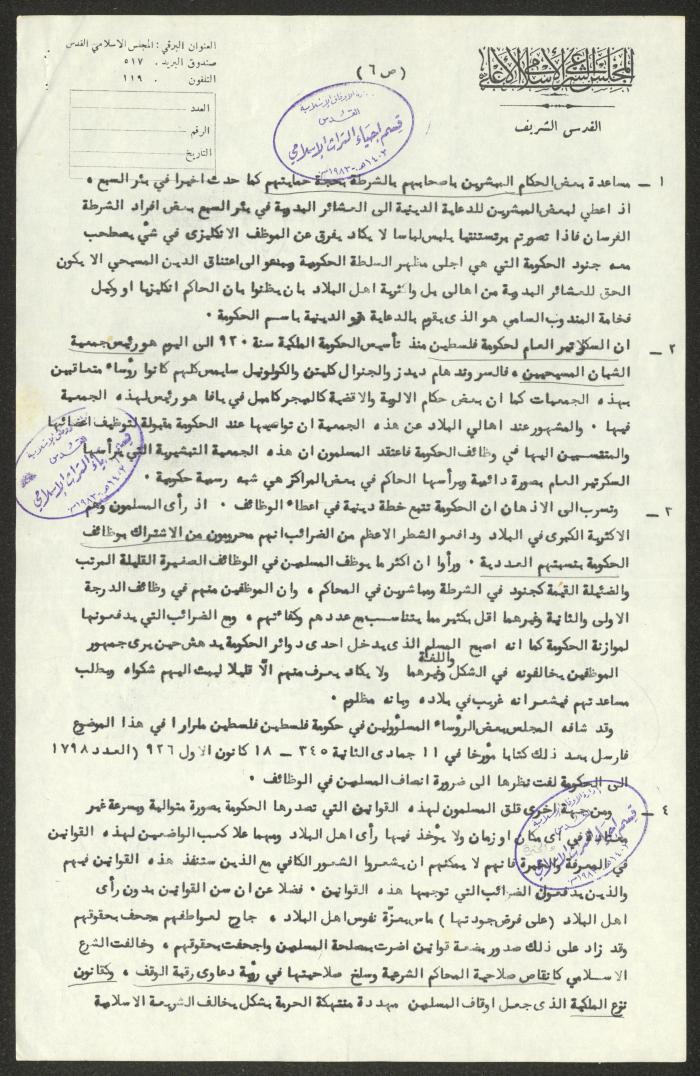 المجلس الشرعي الإسلامي الأعلى
القدس الشريف
(ص ٦)
العنوان البرقي: المجلس الاسلامي القدس
صندوق البريد. ٥١٧
التلفون. ١١٩
العدد
الرقم
التاريخ
وزارة الاوقاف الإسلامية
القدس
قسم إحياء التراث الإسلامي
١٤٠٣هـ-١٩٨٣م
١ – مساعدة بعض الحكام المبشرين باصحابهم بالشرطة بحجة حمايتهم كما حدث اخيرا في بئر السبع .
اذ اعطي لبعض المبشرين للدعاية الدينية الى العشائر البدوية في بئر السبع بعض افراد الشرطة
الفرسان فاذا تصورتم برتستنتيا يلبس لباسا لا يكاد يفرق عن الموظف الانكليزى في شيْ يصطحب
معه جنود الحكومة التي هي اجلى مظهر السلطة الحكومية ويدعو الى اعتناق الدين المسيحي الا يكون
الحق للعشائر البدوية من اهالي بل واكثرية اهل البلاد بان يظنوا بان الحاكم انكليزيا او وكيل
فخامة المندوب السامي هو الذى يقوم بالدعاية الدينية باسم الحكومة .
٢ – ان السكرتير العام لحكومة فلسطين منذ تأسيس الحكومة الملكية سنة ٩٢٠ الى اليوم هو رئيس جمعية
الشبان المسيحيين . فالسر وندهام ديدز والجنرال كليتن والكولونيل سايمس كلهم كانوا رؤساء متعاقبين
بهذه الجمعيات كما ان بعض حكام الالوية والاقضية كالميجر كامبل في يافا هو رئيس لهذه الجمعية
فيها . والمشهور عند اهالي البلاد عن هذه الجمعية ان تواصيها عند الحكومة مقبولة لتوظيف اعضائها
والمنتسبين اليها في وظائف الحكومة فاعتقد المسلمون ان هذه الجمعية التبشيرية التي يترأسها
السكرتير العام بصورة دائمية ويرأسها الحاكم في بعض المراكز هي شبه رسمية حكومية .
٣ – وتسرب الى الاذهان ان الحكومة تتبع خطة دينية في اعطاء الوظائف . اذ رأى المسلمون وهم
الاكثرية الكبرى في البلاد ودافعو الشطر الاعظم من الضرائب انهم محرومون من الاشتراك بوظائف
الحكومة بنسبتهم العددية . ورأوا ان اكثر ما يوظف المسلمين في الوظائف الصغيرة القليلة المرتب
والضئيلة القيمة كجنود في الشرطة ومباشرين في المحاكم . وان الموظفين منهم في وظائف الدرجة
الاولى والثانية وغيرهما اقل بكثير مما يتناسب مع عددهم وكفائتهم . ومع الضرائب التي يدفعونها
لموازنة الحكومة كما انه اصبح المسلم الذى يدخل احدى دوائر الحكومة يدهش حين يرى جمهور
الموظفين يخالفونه في الشكل واللغة وغيرهما ولا يكاد يعرف منهم الّا قليلا ليبث اليهم شكواه ويطلب
مساعدتهم فيشعر انه غريب في بلاده وبانه مظلوم .
وقد شافه المجلس بعض الرؤساء المسلؤولين في حكومة فلسطين فلسطين مرارا في هذا الموضوع
فارسل بعد ذلك كتابا مؤرخا في ١١ جمادى الثانية ٣٤٥ – ١٨ كانون الاول ٩٢٦ (العدد ١٧٩٨
الى الحكومة لفت نظرها الى ضرورة انصاف المسلمين في الوظائف .
٤ – ومن جهة اخرى قلق المسلمون لهذه القوانين التي تصدرها الحكومة بصورة متوالية وبسرعة غير
معتادة في اى مكان او زمان ولا يؤخذ فيها رأى اهل البلاد ومهما علا كعب الواضعين لهذه القوانين
في المعرفة والخبرة فانهم لا يمكنهم ان يشعروا الشعور الكافي مع الذين ستنفذ هذه القوانين فيهم
والذين يدفعون الضرائب التي توجبها هذه القوانين . فضلا عن ان سن القوانين بدون رأى
اهل البلاد (على فرض جودتها) ماس بعزّة نفوس اهل البلاد . جارح لعواطفهم مجحف بحقوقهم
وقد زاد على ذلك صدور بضعة قوانين اضرت بمصلحة المسلمين واجحفت بحقوقهم . وخالفت الشرع
الاسلامي كانقاص صلاحية المحاكم الشرعية وسلخ صلاحيتها في رؤية دعاوى رقبة الوقف . وكقانون
نزع الملكية الذى جعل اوقاف المسلمين مهددة منتهكة الحرمة بشكل يخالف الشريعة الاسلامية